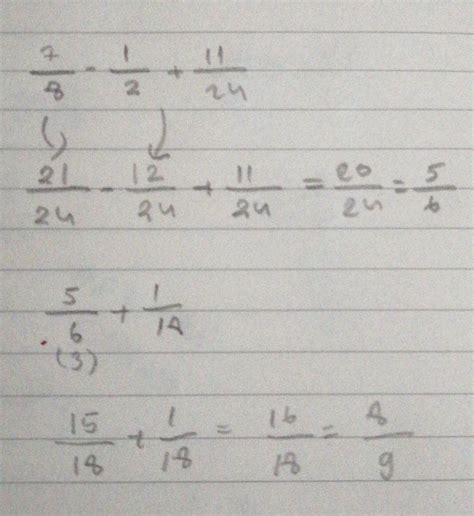 7/8 - 1/2 + 11/24
21/24 - 12/24 + 11/24 = 20/24 = 5/6
5/6 + 1/18
(3)
15/18 + 1/18 = 16/18 = 8/9